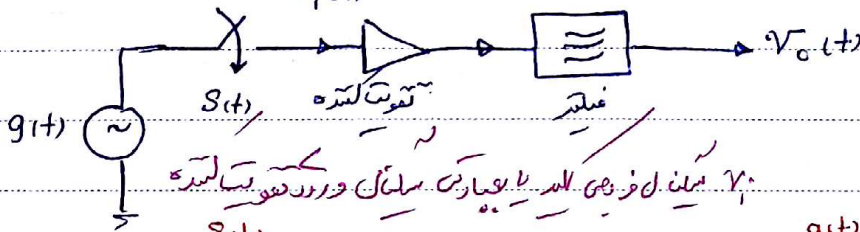 V₀(t)
g(t) ~ S(t) تقویت کننده فیلتر
V₁ سیگنال خروجی کلید یا بعبارتی سیگنال ورودی تقویت کننده
S(t) g(t)